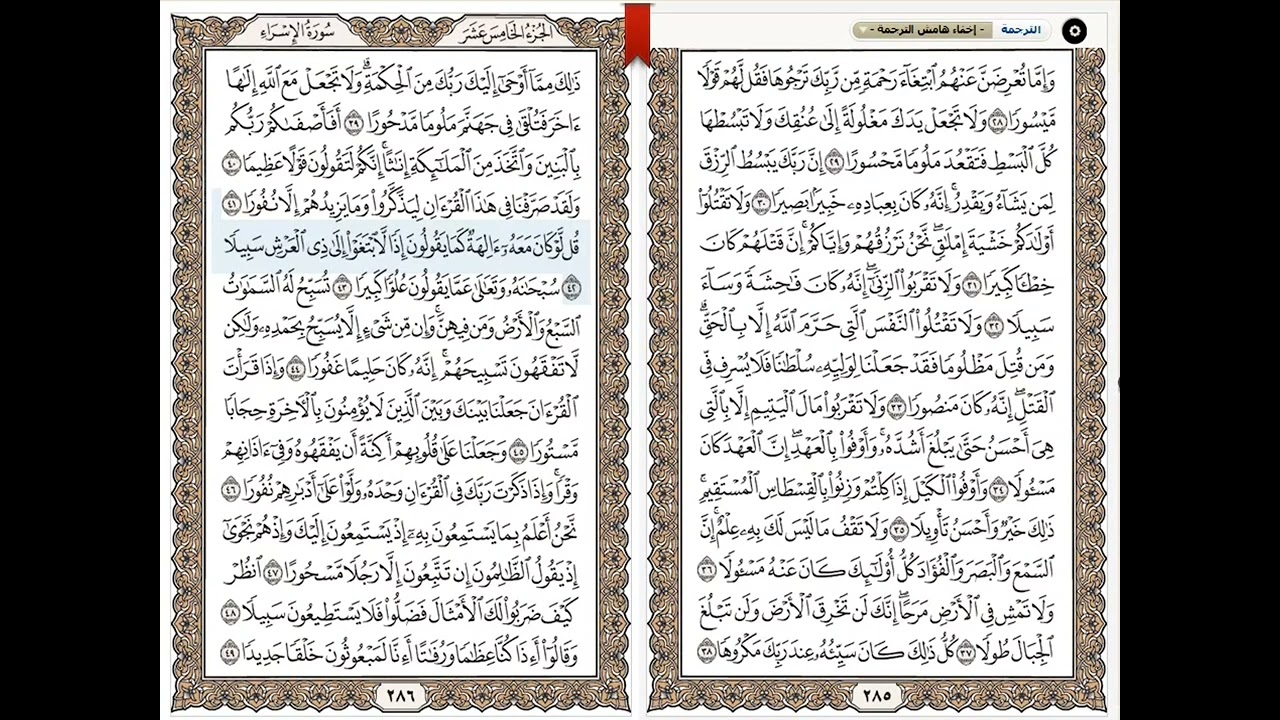 الترجمة
- إخفاء هامش الترجمة -
وَإِمَّا تُعْرِضَنَّ عَنْهُمُ ٱبْتِغَآءَ رَحْمَةٍ مِّن رَّبِّكَ تَرْجُوهَا فَقُل لَّهُمْ قَوْلًا
مَّيْسُورًا ٢٨ وَلَا تَجْعَلْ يَدَكَ مَغْلُولَةً إِلَىٰ عُنُقِكَ وَلَا تَبْسُطْهَا
كُلَّ ٱلْبَسْطِ فَتَقْعُدَ مَلُومًا مَّحْسُورًا ٢٩ إِنَّ رَبَّكَ يَبْسُطُ ٱلرِّزْقَ
لِمَن يَشَآءُ وَيَقْدِرُ ۚ إِنَّهُۥ كَانَ بِعِبَادِهِۦ خَبِيرًۢا بَصِيرًا ٣٠ وَلَا تَقْتُلُوٓا۟
أَوْلَٰدَكُمْ خَشْيَةَ إِمْلَٰقٍ ۖ نَّحْنُ نَرْزُقُهُمْ وَإِيَّاكُمْ ۚ إِنَّ قَتْلَهُمْ كَانَ
خِطْـًٔا كَبِيرًا ٣١ وَلَا تَقْرَبُوا۟ ٱلزِّنَىٰٓ ۖ إِنَّهُۥ كَانَ فَٰحِشَةً وَسَآءَ
سَبِيلًا ٣٢ وَلَا تَقْتُلُوا۟ ٱلنَّفْسَ ٱلَّتِى حَرَّمَ ٱللَّهُ إِلَّا بِٱلْحَقِّ ۗ
وَمَن قُتِلَ مَظْلُومًا فَقَدْ جَعَلْنَا لِوَلِيِّهِۦ سُلْطَٰنًا فَلَا يُسْرِف فِّى
ٱلْقَتْلِ ۖ إِنَّهُۥ كَانَ مَنصُورًا ٣٣ وَلَا تَقْرَبُوا۟ مَالَ ٱلْيَتِيمِ إِلَّا بِٱلَّتِى
هِىَ أَحْسَنُ حَتَّىٰ يَبْلُغَ أَشُدَّهُۥ ۚ وَأَوْفُوا۟ بِٱلْعَهْدِ ۖ إِنَّ ٱلْعَهْدَ كَانَ
مَسْـُٔولًا ٣٤ وَأَوْفُوا۟ ٱلْكَيْلَ إِذَا كِلْتُمْ وَزِنُوا۟ بِٱلْقِسْطَاسِ ٱلْمُسْتَقِيمِ ۚ
ذَٰلِكَ خَيْرٌ وَأَحْسَنُ تَأْوِيلًا ٣٥ وَلَا تَقْفُ مَا لَيْسَ لَكَ بِهِۦ عِلْمٌ ۚ إِنَّ
ٱلسَّمْعَ وَٱلْبَصَرَ وَٱلْفُؤَادَ كُلُّ أُو۟لَٰٓئِكَ كَانَ عَنْهُ مَسْـُٔولًا ٣٦
وَلَا تَمْشِ فِى ٱلْأَرْضِ مَرَحًا ۖ إِنَّكَ لَن تَخْرِقَ ٱلْأَرْضَ وَلَن تَبْلُغَ
ٱلْجِبَالَ طُولًا ٣٧ كُلُّ ذَٰلِكَ كَانَ سَيِّئُهُۥ عِندَ رَبِّكَ مَكْرُوهًا ٣٨
٢٨٥
الجزء الخامس عشر
سورة الإسراء
ذَٰلِكَ مِمَّآ أَوْحَىٰٓ إِلَيْكَ رَبُّكَ مِنَ ٱلْحِكْمَةِ ۗ وَلَا تَجْعَلْ مَعَ ٱللَّهِ إِلَٰهًا
ءَاخَرَ فَتُلْقَىٰ فِى جَهَنَّمَ مَلُومًا مَّدْحُورًا ٣٩ أَفَأَصْفَىٰكُمْ رَبُّكُم
بِٱلْبَنِينَ وَٱتَّخَذَ مِنَ ٱلْمَلَٰٓئِكَةِ إِنَٰثًا ۚ إِنَّكُمْ لَتَقُولُونَ قَوْلًا عَظِيمًا ٤٠
وَلَقَدْ صَرَّفْنَا فِى هَٰذَا ٱلْقُرْءَانِ لِيَذَّكَّرُوا۟ وَمَا يَزِيدُهُمْ إِلَّا نُفُورًا ٤١
قُل لَّوْ كَانَ مَعَهُۥٓ ءَالِهَةٌ كَمَا يَقُولُونَ إِذًا لَّٱبْتَغَوْا۟ إِلَىٰ ذِى ٱلْعَرْشِ سَبِيلًا
٤٢ سُبْحَٰنَهُۥ وَتَعَٰلَىٰ عَمَّا يَقُولُونَ عُلُوًّا كَبِيرًا ٤٣ تُسَبِّحُ لَهُ ٱلسَّمَٰوَٰتُ
ٱلسَّبْعُ وَٱلْأَرْضُ وَمَن فِيهِنَّ ۚ وَإِن مِّن شَىْءٍ إِلَّا يُسَبِّحُ بِحَمْدِهِۦ وَلَٰكِن
لَّا تَفْقَهُونَ تَسْبِيحَهُمْ ۗ إِنَّهُۥ كَانَ حَلِيمًا غَفُورًا ٤٤ وَإِذَا قَرَأْتَ
ٱلْقُرْءَانَ جَعَلْنَا بَيْنَكَ وَبَيْنَ ٱلَّذِينَ لَا يُؤْمِنُونَ بِٱلْـَٔاخِرَةِ حِجَابًا
مَّسْتُورًا ٤٥ وَجَعَلْنَا عَلَىٰ قُلُوبِهِمْ أَكِنَّةً أَن يَفْقَهُوهُ وَفِىٓ ءَاذَانِهِمْ
وَقْرًا ۚ وَإِذَا ذَكَرْتَ رَبَّكَ فِى ٱلْقُرْءَانِ وَحْدَهُۥ وَلَّوْا۟ عَلَىٰٓ أَدْبَٰرِهِمْ نُفُورًا ٤٦
نَّحْنُ أَعْلَمُ بِمَا يَسْتَمِعُونَ بِهِۦٓ إِذْ يَسْتَمِعُونَ إِلَيْكَ وَإِذْ هُمْ نَجْوَىٰٓ
إِذْ يَقُولُ ٱلظَّٰلِمُونَ إِن تَتَّبِعُونَ إِلَّا رَجُلًا مَّسْحُورًا ٤٧ ٱنظُرْ
كَيْفَ ضَرَبُوا۟ لَكَ ٱلْأَمْثَالَ فَضَلُّوا۟ فَلَا يَسْتَطِيعُونَ سَبِيلًا ٤٨
وَقَالُوٓا۟ أَءِذَا كُنَّا عِظَٰمًا وَرُفَٰتًا أَءِنَّا لَمَبْعُوثُونَ خَلْقًا جَدِيدًا ٤٩
٢٨٦